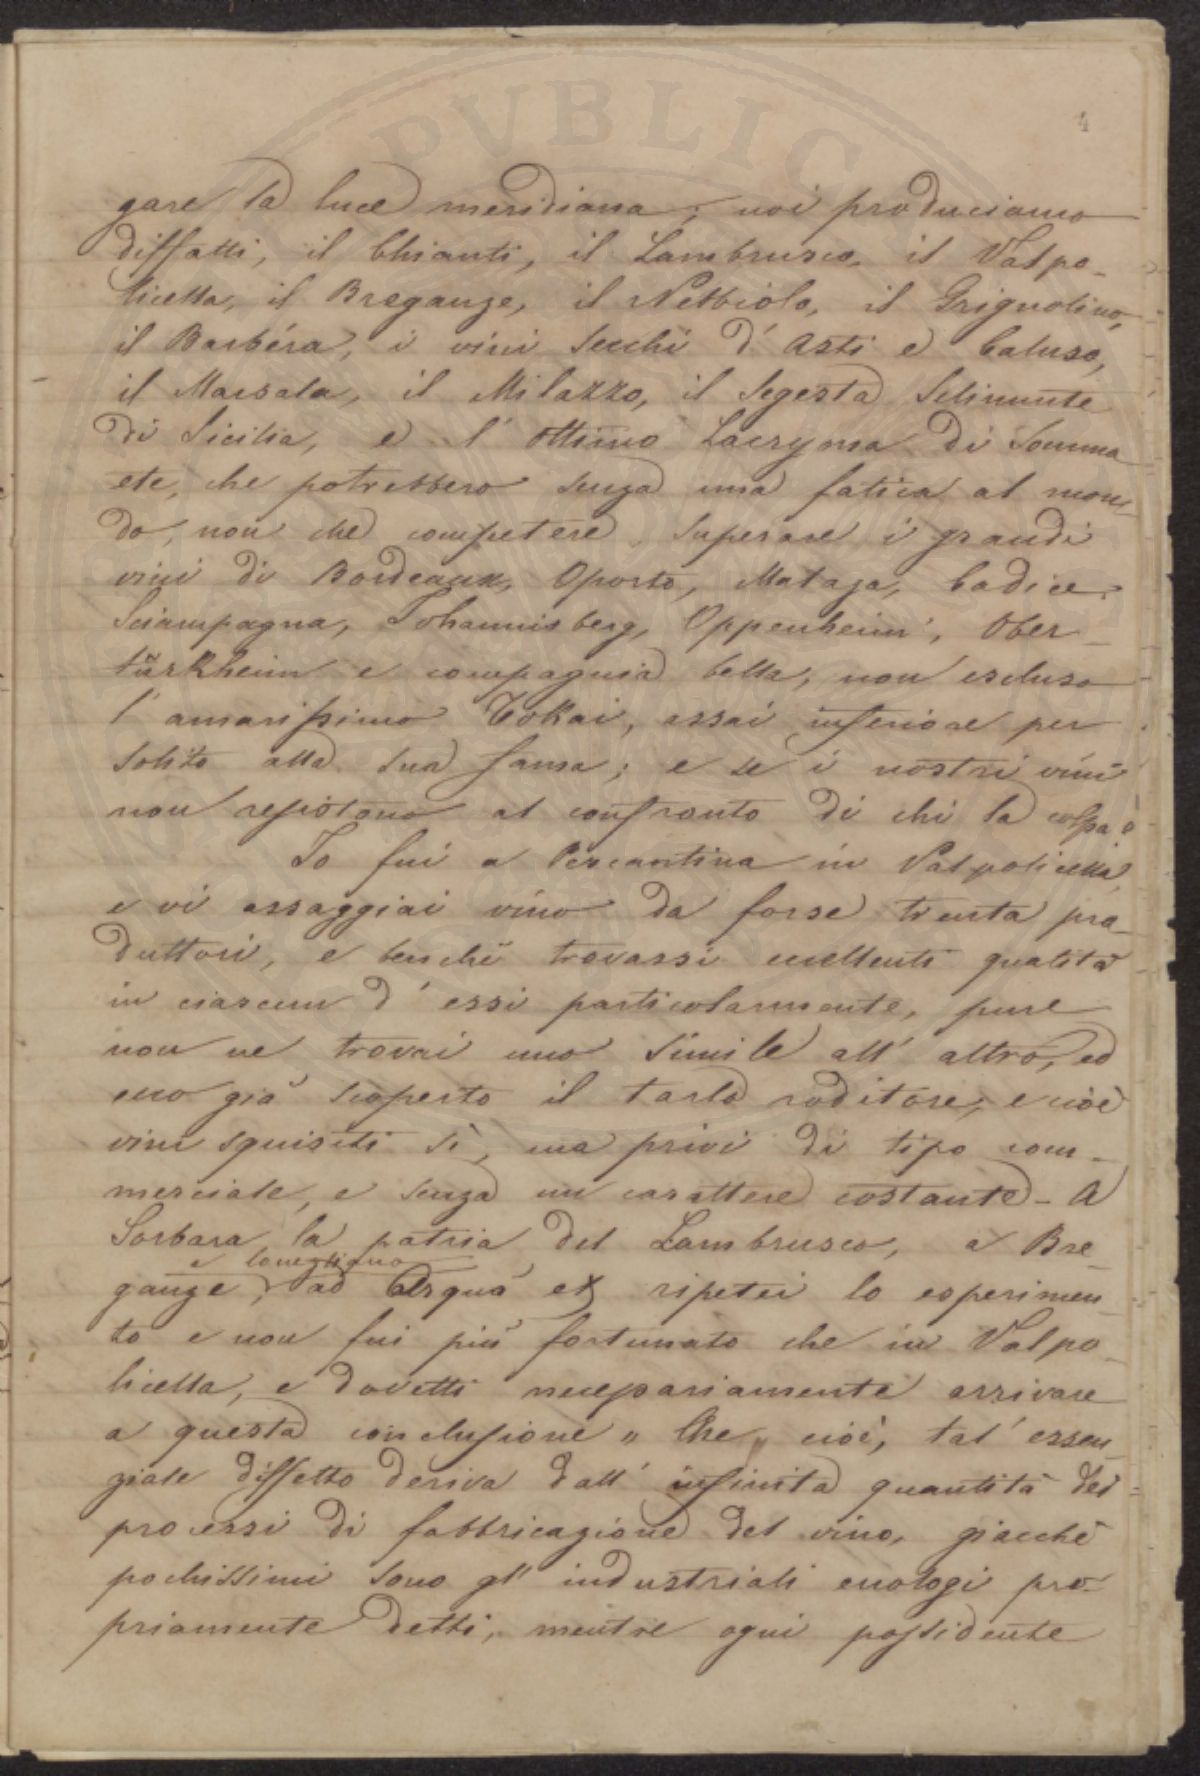 4
gare la luce meridiana; noi produciamo
diffatti, il Chianti, il Lambrusco, il Valpo-
licella, il Breganze, il Nebbiolo, il Grignolino,
il Barbéra, i vini secchi d'Asti e Caluso,
il Marsala, il Milazzo, il Segesta Selinunte
di Sicilia, e l'ottimo Lacryma di Somma
etc, che potrebbero senza una fatica al mon-
do, non che competere superare i grandi
vini di Bordeaux, Oporto, Malaga, Cadice,
Sciampagna, Johannisberg, Oppenheim, Ober-
türkheim e compagnia bella, non escluso
l'amarissimo Tokai, assai inferiore per
solito alla sua fama; e se i nostri vini
non resistono al confronto di chi la colpa?
Io fui a Pescantina in Valpolicella,
e vi assaggiai vino da forse trenta pro-
duttori, e benchè trovassi eccellenti qualità
in ciascun d'essi particolarmente, pure
non ne trovai uno simile all'altro, ed
ecco già scoperto il tarlo roditore, e cioè
vini squisiti sì, ma privi di tipo com-
merciale, e senza un carattere costante - A
Sorbara la patria del Lambrusco, a Bre-
e Conegliano
ganze, ad Arquà ripetei lo esperimen-
to e non fui più fortunato che in Valpo-
licella, e dovetti necessariamente arrivare
a questa conclusione „ Che „ cioè, tal' essen-
ziale diffetto deriva dall' infinita quantità dei
processi di fabbricazione del vino, giacchè
pochissimi sono gl' industriali enologi pro-
priamente detti, mentre ogni possidente
PVBLIC